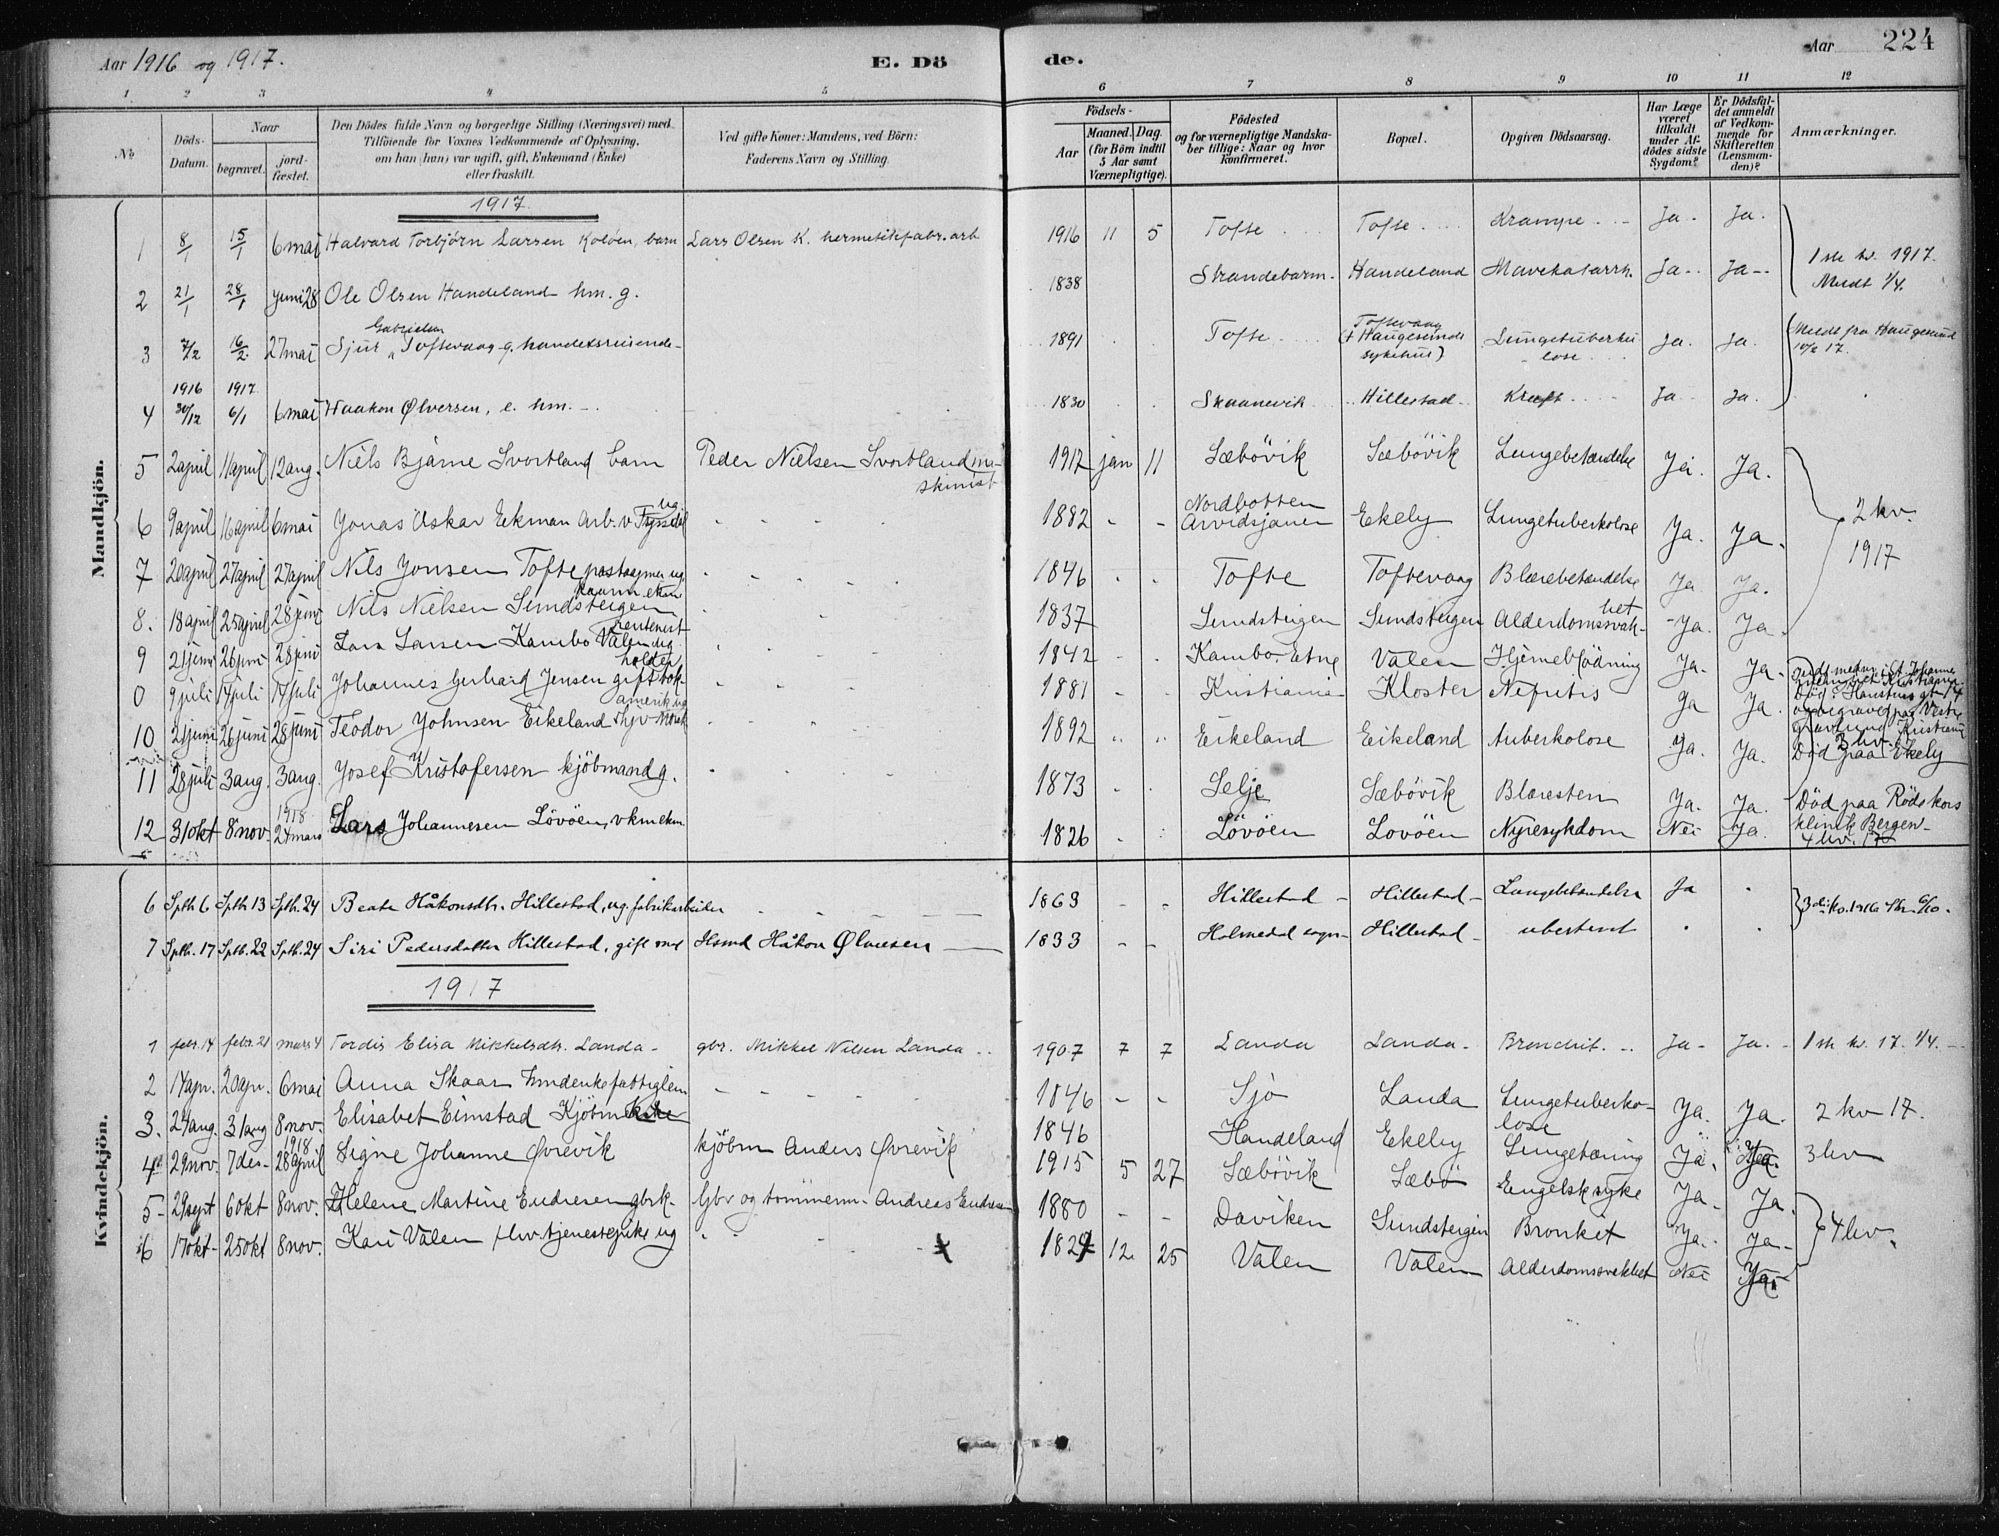 Aar 1916 og 1917.
E. Dö
de.
Aar
224
1 2 3 4 5 6 7 8 9 10 11 12
No
Döds-Datum.
Naar
begravet.
jord-fæstet.
Den Dödes fulde Navn og borgerlige Stilling (Næringsvei) med Tilföiende for Voxnes Vedkommende af Oplysning, om han (hun) var ugift, gift, Enkemand (Enke) eller fraskilt.
Ved gifte Koner: Mandens, ved Börn: Faderens Navn og Stilling.
Födsels-
Aar
Maaned. Dag. (for Börn indtil 5 Aar samt Værnepligtige).
Födested og for værnepligtige Mandska-ber tillige: Naar og hvor konfirmeret.
Bopæl.
Opgiven Dödsaarsag.
Har Læge været tilkaldt under Af-dödes sidste Sygdom?
Er Dödsfal-det anmeldt af Vedkom-mende for Skifteretten (Lensman-den)?
Anmærkninger.
Mandkjön.
1917.
1 8/1 15/1 6 mai Halvard Torbjørn Larsen Koløen, barn Lars Olsen K. hermetikfabr. arb 1916 11 5 Tofte Tofte Krampe Ja. Ja.
1ste kv. 1917. Meldt 1/4.
2 21/1 28/1 juni 28 Ole Olsen Handeland hm. g. 1838 Strandebarm. Handeland Mavekatarrh. Ja. Ja.
3 7/2 16/2 27 mai Sjur Gabrielsen Toftevaag g. handelsreisende 1891 Tofte Toftevaag († Haugesunds sykehus) Lungetuberkulose Ja. Ja. Meldt fra Haugesund 10/2 17.
1916 1917
4 30/12 6/1 6 mai Haakon Ølversen, e. hm. 1830 Skaanevik Hillestad Kræft Ja Ja.
5 2 april 11 april 12 aug. Niels Bjarne Svortland barn Peder Nielsen Svortland maskinist 1917 jan 11 Sæbövik Sæbövik Lungebetændelse Ja. Ja.
6 9 april 16 april 6 mai Jonas Oskar Ekman Arb. v Tyssedal ug. 1882 - - Nordbotten Arvidsjauer Ekely Lungetuberkolose Ja. Ja.
2 kv. 1917
7 20 april 27 april 27 april Nils Jonsen Tofte postaapner ug. 1846 Tofte Toftevaag Blærebetændelse Ja Ja.
8. 18 april 25 april 28 juni Nils Nielsen Sundsteigen kaarm ekm 1837 Sundsteigen Sundsteigen Alderdomssvakhet Ja. Ja.
9 21 juni 26 juni 28 juni Lars Larsen Kambo Valen rentenist ug. 1842 Kambo. Etne Valen Hjerneblödning Ja. Ja.
0 9 juli 17 juli 17 juli Johannes Gerhard Jensen gift bokholder 1881 Kristiania Kloster Nefritis Ja Ja.
10 21 juni 26 juni 28 juni Teodor Johnsen Eikeland 1892 Eikeland Eikeland Tuberkolose Ja. Ja. Död paa Ekely
11 28 juli 3 aug. 3 aug. Josef Kristofersen kjöbmand g. 1873 Selje Sæbövik Blæresten Ja. Ja. Död paa Röds kors klinik Bergen
12 31 okt 8 nov. 1918 24 mars Lars Johannesen Lövöen, vkm ekm 1826 Lövöen Lovöen Nyresykdom Nei Ja. 4 kv. 17
Kvindekjön.
6 Spth 6 Spth 13 Spth. 24 Beate Håkonsdtr. Hillestad, ug. fabrikarbeider 1863 - - Hillestad Hillestad Lungebetændelse Ja
7 Spth. 17 Spth. 22 Spth. 24 Siri Pedersdatter Hillestad, gift med Hsmd Håkon Ølversen 1833 - - Holmedal sogn Hillestad ubestemt
1917
1 febr. 14 febr. 21 mars 4 Tordis Elisa Mikkelsdtr. Landa gbr. Mikkel Nilsen Landa 1907 7 7 Landa Landa Bronchit. Ja Ja. 1ste kv. 17. 1/4.
2 14 apr. 20 apr. 6 mai Anna Skaar 1846 - - Sjo Landa Lungetuberkolose Ja. Ja. 2 kv 17.
3. 24 aug. 31 aug 8 nov. Elisabet Eimstad Kjöbm 1846 Handeland Ekeby Lungetæring Ja.
4 29 nov. 7 des 1918 28 april Signe Johanne Øvrevik kjöbm Anders Øvrevik 1915 5 27 Sæbövik Sæbö Engelsk syke Ja. Ja. 3 kv
5 29 sept 6 okt 8 nov. Helene Martine Endresen gbrk. Gbr og tömmerm. Andreas Endresen 1880 - - Daviken Sundsteigen Bronket Ja. Ja.
4 kv.
6 17 okt 25 okt 8 nov. Kari Valen fhv. tjenestepike ug 1824 12 25 Valen Valen Alderdomssvekket Nei Ja.